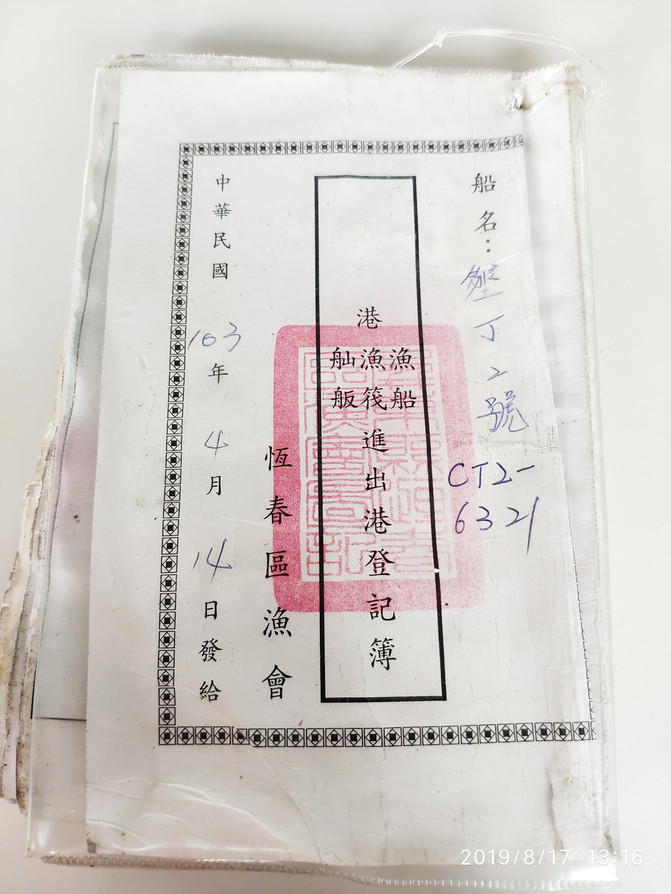 船名：墾丁2號
CT2-
6321
港
漁船
漁筏
舢舨
進出港登記簿
恆春區漁會
中華民國103年4月14日發給
2019/8/17 13:16